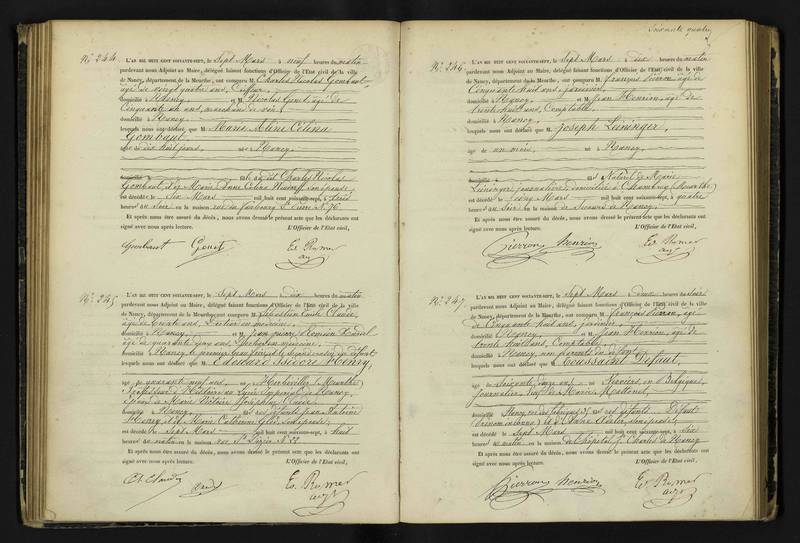 N.° 244.
L'AN MIL HUIT CENT SOIXANTE-SEPT, le Sept Mars à neuf heures du matin
pardevant nous Adjoint au Maire, délégué faisant fonctions d'Officier de l'Etat civil de la ville
de Nancy, département de la Meurthe, ont comparu M. Charles Nicolas Gombaut
âgé de vingt quatre ans, Coiffeur
domicilié à Nancy, et M. Nicolas Genet âgé de
Cinquante un ans, marchand de
domicilié à Nancy
lesquels nous ont déclaré que M. Marie Aline Célina
Gombaut,
âgée de dix huit jours, née à Nancy,
Charles Nicolas
Gombaut, et de Marie Anne Célina son épouse,
est décédée le Six Mars mil huit cent soixante-sept, à trois
heures du soir en la maison rue du faubourg St Pierre N.° 76
Et après nous être assuré du décès, nous avons dressé le présent acte que les déclarants ont
signé avec nous après lecture. L'Officier de l'Etat civil,
Gombaut Genet
N.° 245
L'AN MIL HUIT CENT SOIXANTE-SEPT, le Sept Mars à dix heures du matin
pardevant nous Adjoint au Maire, délégué faisant fonctions d'Officier de l'Etat civil de la ville
de Nancy, département de la Meurthe, ont comparu M. Sébastien Emile
âgé de trente ans, Docteur en médecine,
domicilié à Nancy, et M. Jean pierre
âgé de quarante cinq ans, Docteur en médecine,
domicilié à Nancy, le premier beau frère et le second du défunt
lesquels nous ont déclaré que M. Edouard Isidore Henry,
âgé de quarante neuf ans, né à Herbéviller (Meurthe)
Professeur d'Histoire au Lycée Impérial de Nancy,
époux de Marie Victoire Joséphine
domicilié à Nancy, Jean Antoine
Henry et de Marie Catherine son épouse,
est décédé le Sept Mars mil huit cent soixante-sept, à huit
heures du matin en la maison rue St Dizier N.°
Et après nous être assuré du décès, nous avons dressé le présent acte que les déclarants ont
signé avec nous après lecture. L'Officier de l'Etat civil,
Soixante quatre
N.° 246.
L'AN MIL HUIT CENT SOIXANTE-SEPT, le Sept Mars à dix heures du matin
pardevant nous Adjoint au Maire, délégué faisant fonctions d'Officier de l'Etat civil de la ville
de Nancy, département de la Meurthe, ont comparu M. françois Pierron âgé de
Cinquante huit ans, jardinier,
domicilié à Nancy, et M. Jean Henrion, âgé de
trente huit ans, Comptable,
domicilié à Nancy,
lesquels nous ont déclaré que M. Joseph Leininger,
âgé de un mois, né à Nancy,
fils Naturel de Marie
Leininger, journalière, domiciliée à
est décédé le Sept Mars mil huit cent soixante-sept, à quatre
heures du en la maison de Secours de Nancy.
Et après nous être assuré du décès, nous avons dressé le présent acte que les déclarants ont
signé avec nous après lecture. L'Officier de l'Etat civil,
Pierron Henrion
N.° 247.
L'AN MIL HUIT CENT SOIXANTE-SEPT, le Sept Mars à deux heures du soir
pardevant nous Adjoint au Maire, délégué faisant fonctions d'Officier de l'Etat civil de la ville
de Nancy, département de la Meurthe, ont comparu M. françois Pierron, âgé
de Cinquante huit ans, jardinier,
domicilié à Nancy, et M. Jean Henrion, âgé de
trente huit ans, Comptable,
domicilié à Nancy, non parents du défunt
lesquels nous ont déclaré que M. Toussaint Defaut,
âgé de Soixante ans, né à Verviers, en Belgique,
journalier, veuf de Marie
domicilié à Nancy, Defaut
est décédé le Sept Mars mil huit cent soixante-sept, à
heures du matin en la maison de l'hôpital St Charles de Nancy
Et après nous être assuré du décès, nous avons dressé le présent acte que les déclarants ont
signé avec nous après lecture. L'Officier de l'Etat civil,
Pierron Henrion